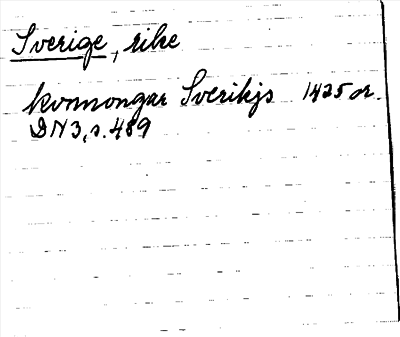 Sverige, rike
konnongar Sverikjs 1425 or.
DN 3, s. 489